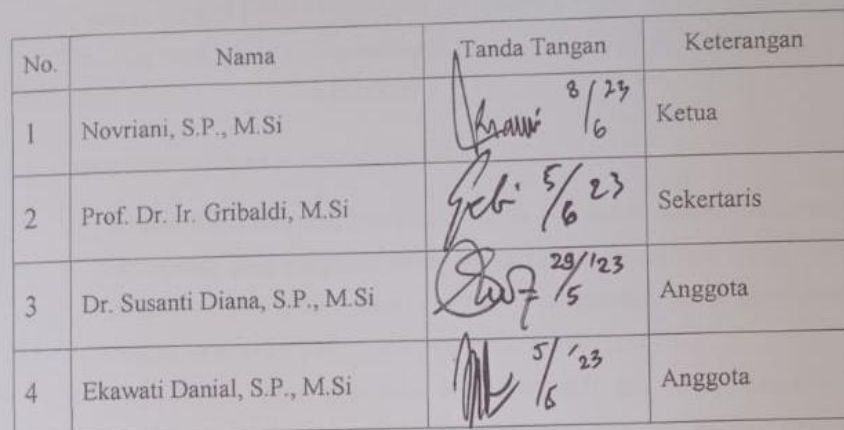 No. Nama Tanda Tangan Keterangan
1 Novriani, S.P., M.Si 8/6 23 Ketua
2 Prof. Dr. Ir. Gribaldi, M.Si 5/6 23 Sekertaris
3 Dr. Susanti Diana, S.P., M.Si 29/5 '23 Anggota
4 Ekawati Danial, S.P., M.Si 5/6 '23 Anggota